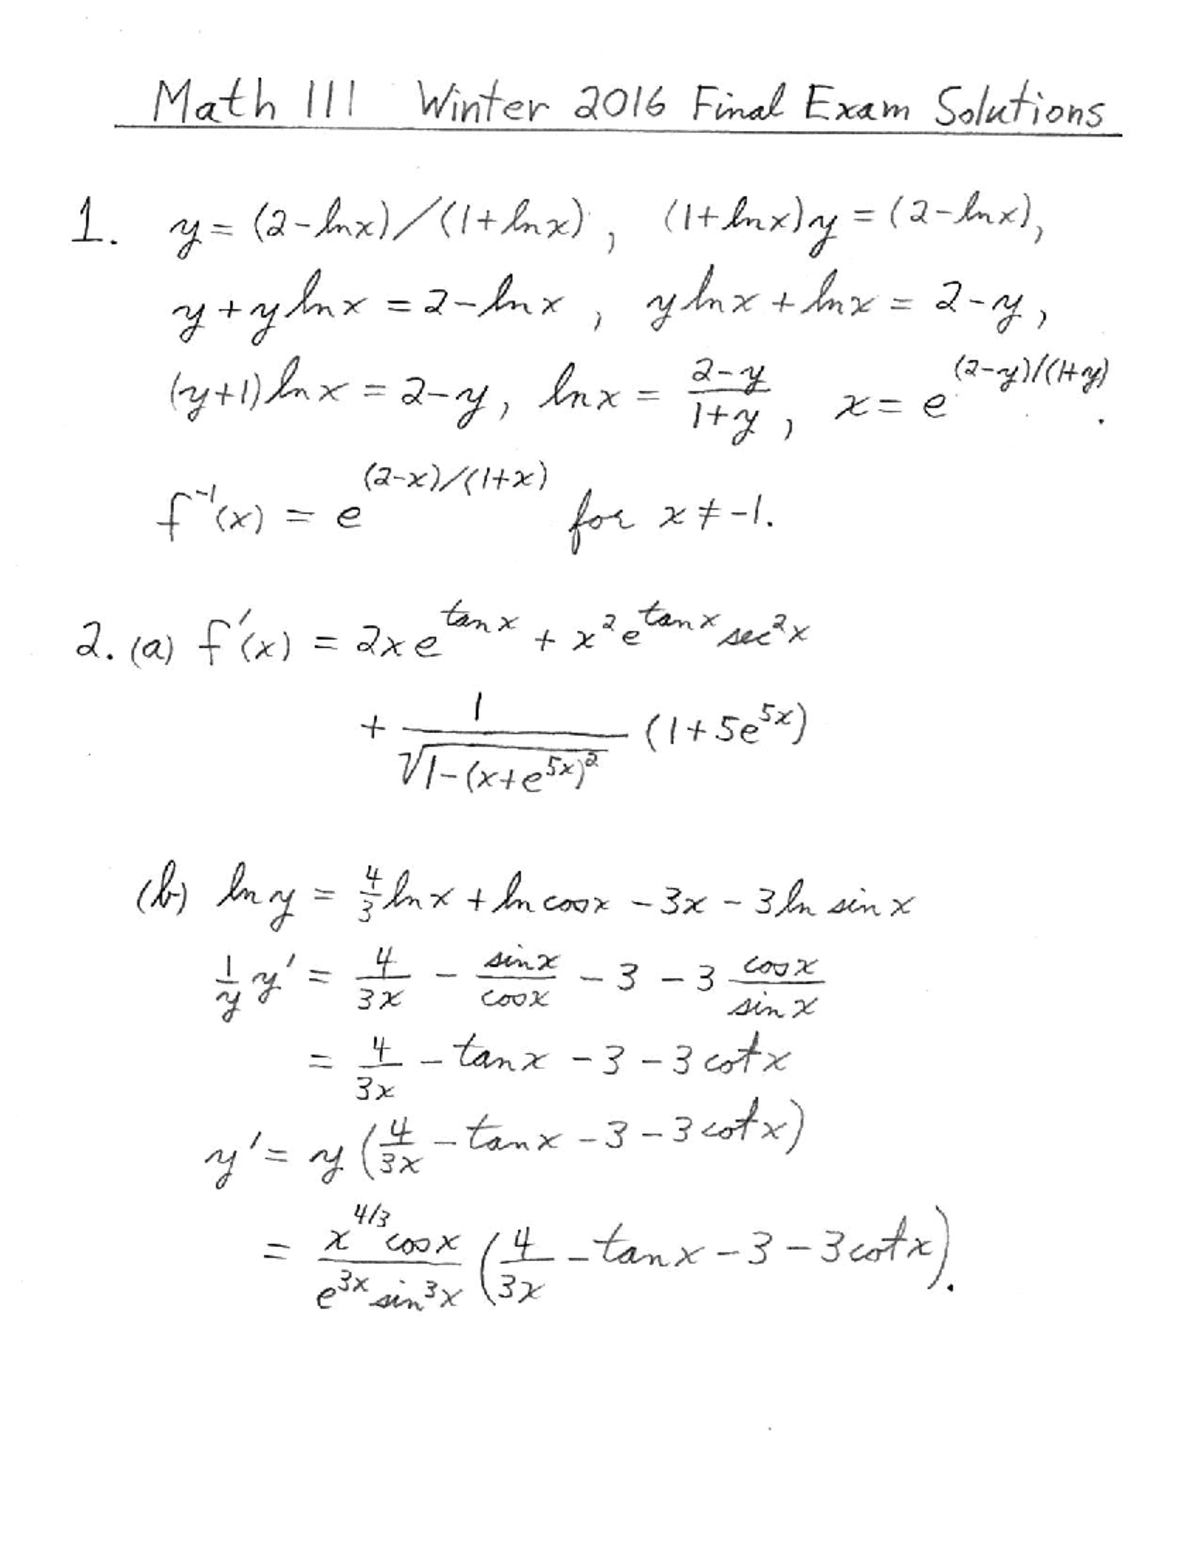 Math 111 Winter 2016 Final Exam Solutions
1. y = (2-lnx)/(1+lnx), (1+lnx)y = (2-lnx),
y + y lnx = 2-lnx, y lnx + lnx = 2-y,
(y+1) lnx = 2-y, lnx = \frac{2-y}{1+y}, x = e^{(2-y)/(1+y)}.
f^{-1}(x) = e^{(2-x)/(1+x)} for x ≠ -1.
2. (a) f'(x) = 2x e^{tan x} + x^2 e^{tan x} sec^2 x
+ \frac{1}{\sqrt{1-(x+e^{5x})^2}} (1+5e^{5x})
(b) ln y = \frac{4}{3} ln x + ln cos x - 3x - 3 ln sin x
\frac{1}{y} y' = \frac{4}{3x} - \frac{sin x}{cos x} - 3 - 3 \frac{cos x}{sin x}
= \frac{4}{3x} - tan x - 3 - 3 cot x
y' = y (\frac{4}{3x} - tan x - 3 - 3 cot x)
= \frac{x^{4/3} cos x}{e^{3x} sin^3 x} (\frac{4}{3x} - tan x - 3 - 3 cot x).